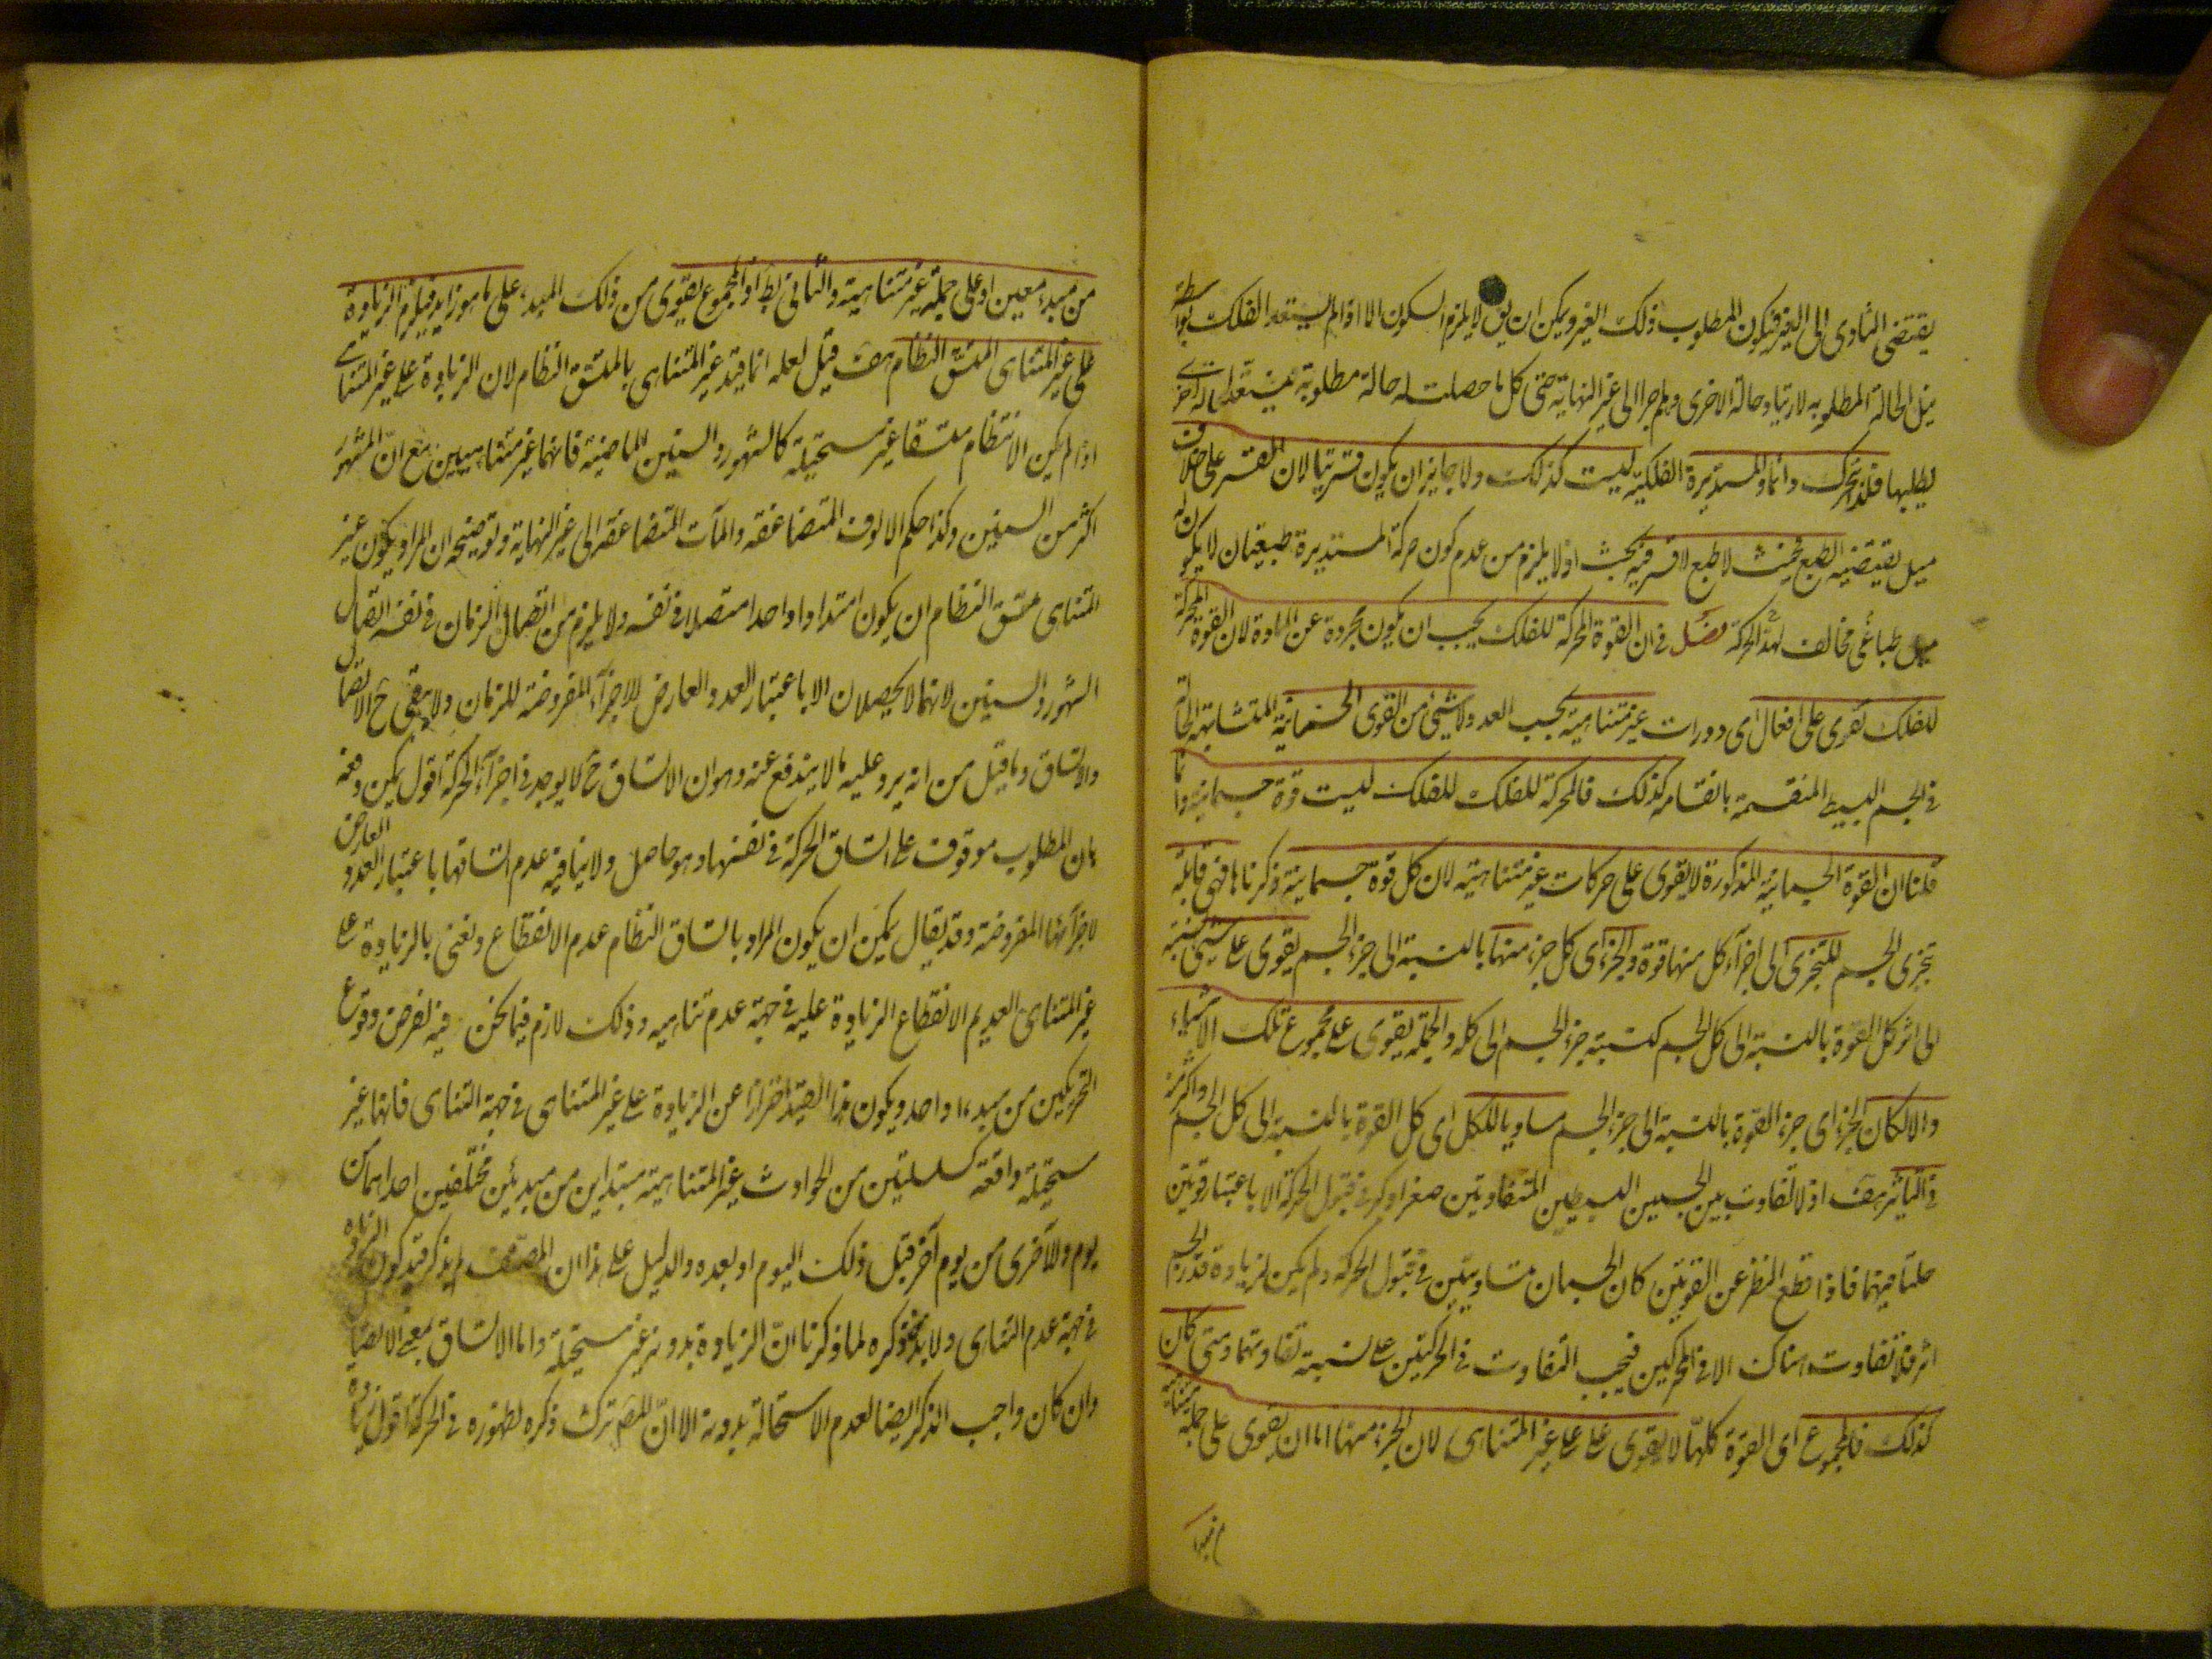 يقتضى التأدى الى الغير فيكون المطلوب ذلك الغير ويمكن ان يق لا يلزم السكون الا اذا لم يستعد الفلك بواسطة
نيل الحالة المطلوبه لارتياد حالة الاخرى وهلم جرا الى غير النهاية حتى كل ما حصلت له حالة مطلوبة يستعد لحالة اخرى
يطلبها فلذا يتحرك دائما والمستديرة الفلكية ليست كذلك ولا جايز ان يكون قسرية لان القسر على خلاف
ميل يقتضيه الطبع فحيث لا طبع لا قسر فيه بحث اذ لا يلزم من عدم كون حركة المستديرة طبيعة ان لا يكون له
ميل طباعى مخالف لهذا الحركة فصل فى ان القوة المحركة للفلك يجب ان يكون مجردة عن المادة لان القوة المحركة
للفلك تقوى على افعال اى دورات غير متناهية بحسب العدد ولا شىء من القوى الجسمانية المتشابهة الحالة
فى الجسم البسيط المنقسمة بانقسامه كذلك فالمحركة للفلك للفلك ليست قوة جسمانية وانما
قلنا ان القوة الجسمانية المذكورة لا يقوى على حركات غير متناهية لان كل قوة جسمانية ذكرناها فهى قابلة
تجزى الجسم للتجزى الى اجزاء كل منها قوة والجزء اى كل جزء منها بالنسبة الى جزء الجسم يقوى على شىء نسبته
الى اثر كل القوة بالنسبة الى كل الجسم كنسبة جزء الجسم الى كله والجملة يقوى على مجموع تلك الاشياء
والا لكان الجزء اى جزء القوة بالنسبة الى جزء الجسم مساويا للكل اى كل القوة بالنسبة الى كل الجسم او اكثر منه
فى التأثير هف اذ لا تفاوت بين الجسمين البسيطين المتفاوتين صغرا وكبرا فى قبول الحركة الا باعتبار قوتين
حلتا فيهما فاذا قطع النظر عن القوتين كان الجسمان متساويين فى قبول الحركة ولم يكن لزيادة قدر الجسم
اثر فلا تفاوت هناك الا فى المحركين فيجب التفاوت فى الحركتين على نسبة تفاوتهما ومتى كان
كذلك فالمجموع اى القوة كلها لا يقوى على على غير المتناهى لان الجزء منها اما ان يقوى على جملة متناهية
من مبدء
من مبدء معين او على جملة غير متناهية والثانى بط اذ المجموع يقوى من ذلك المبدء على ما هو زايد فيلزم الزيادة
على غير المتناهى المتسق النظام هف قيل لعله انما قيد غير المتناهى بالمتسق النظام لان الزيادة على غير المتناهى
اذا لم يكن الانتظام متسقا غير مستحيلة كالشهور والسنين الماضية فانهما غير متناهيين مع ان الشهور
اكثر من السنين وكذا حكم الالوف المتضاعفة والمآت المتضاعفة الى غير النهاية وتوضيحه ان المراد بكون غير
المتناهى متسق النظام ان يكون امتدادا واحدا متصلا فى نفسه ولا يلزم من اتصال الزمان فى نفسه اتصال
الشهور والسنين لانهما لا يحصلان الا باعتبار العدد العارض للاجزاء المفروضة للزمان ولا يبقى ح الاتصال
والاتساق وما قيل من انه يرد عليه ما لا يندفع عنه وهو ان الاتساق ح لا يوجد فى اجزاء الحركة اقول يمكن دفعه
بان المطلوب موقوف على اتساق الحركة فى نفسها وهو حاصل ولا ينافيه عدم اتساقها باعتبار العدد العارض
لاجزائها المفروضة وقد يقال يمكن ان يكون المراد باتساق النظام عدم الانقطاع ونعنى بالزيادة على
غير المتناهى العديم الانقطاع الزيادة عليه فى جهة عدم تناهيه وذلك لازم فيما نحن فيه لفرض وقوع
التحريكين من مبدء واحد ويكون هذا القيد احترازا عن الزيادة على غير المتناهى فى جهة التناهى فانها غير
مستحيلة واقعة كسلسلتين من الحوادث غير المتناهية مبتدايين من مبدئين مختلفين احدهما من
يوم والاخرى من يوم آخر قبل ذلك اليوم او بعده والدليل على هذا ان المصنف لم يذكر قيد كون الزيادة
فى جهة عدم التناهى ولا بد من ذكره لما ذكرنا ان الزيادة بدونه غير مستحيلة واما الاتساق بمعنى الاتصال
وان كان واجب الذكر ايضا لعدم الاستحالة بدونه الا ان المص ترك ذكره لظهوره فى الحركة اقول زيادة